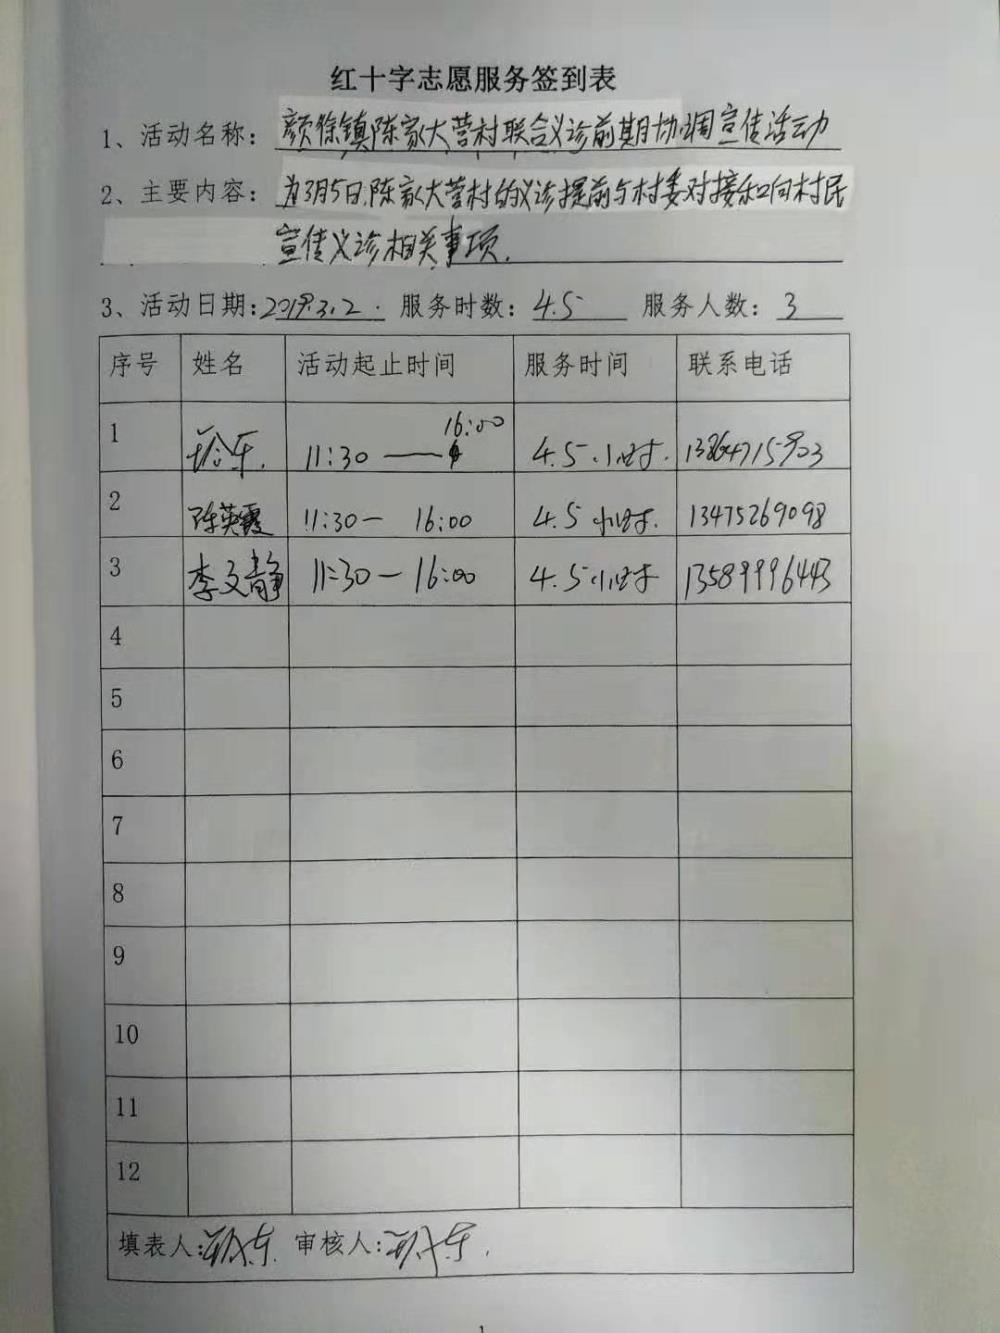 红十字志愿服务签到表
1、活动名称: 颜徐镇陈家大营村联合义诊前期协调宣传活动
2、主要内容: 为3月5日陈家大营村的义诊提前与村委对接和向村民
宣传义诊相关事项.
3、活动日期: 2019.3.2. 服务时数: 4.5 服务人数: 3
序号 姓名 活动起止时间 服务时间 联系电话
1 11:30 —— 16:00 4.5小时.
2 陈英霞 11:30— 16:00 4.5小时. 13475269098
3 李文静 11:30—16:00 4.5小时 13589996443
4
5
6
7
8
9
10
11
12
填表人: 审核人:
1